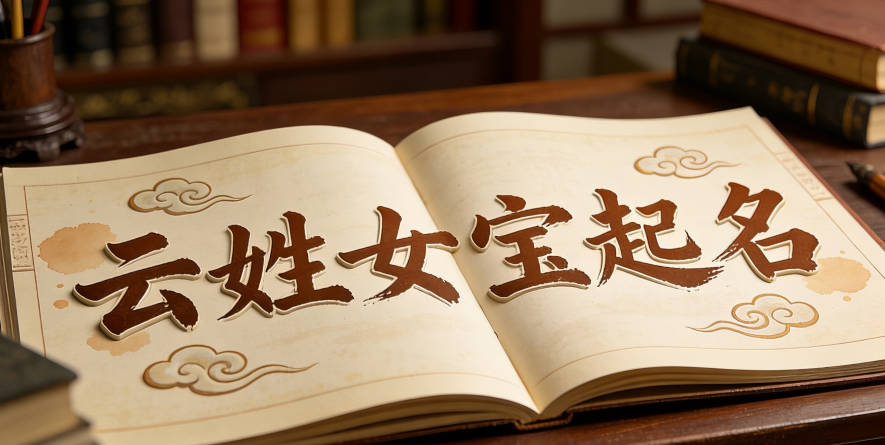 云姓女宝起名